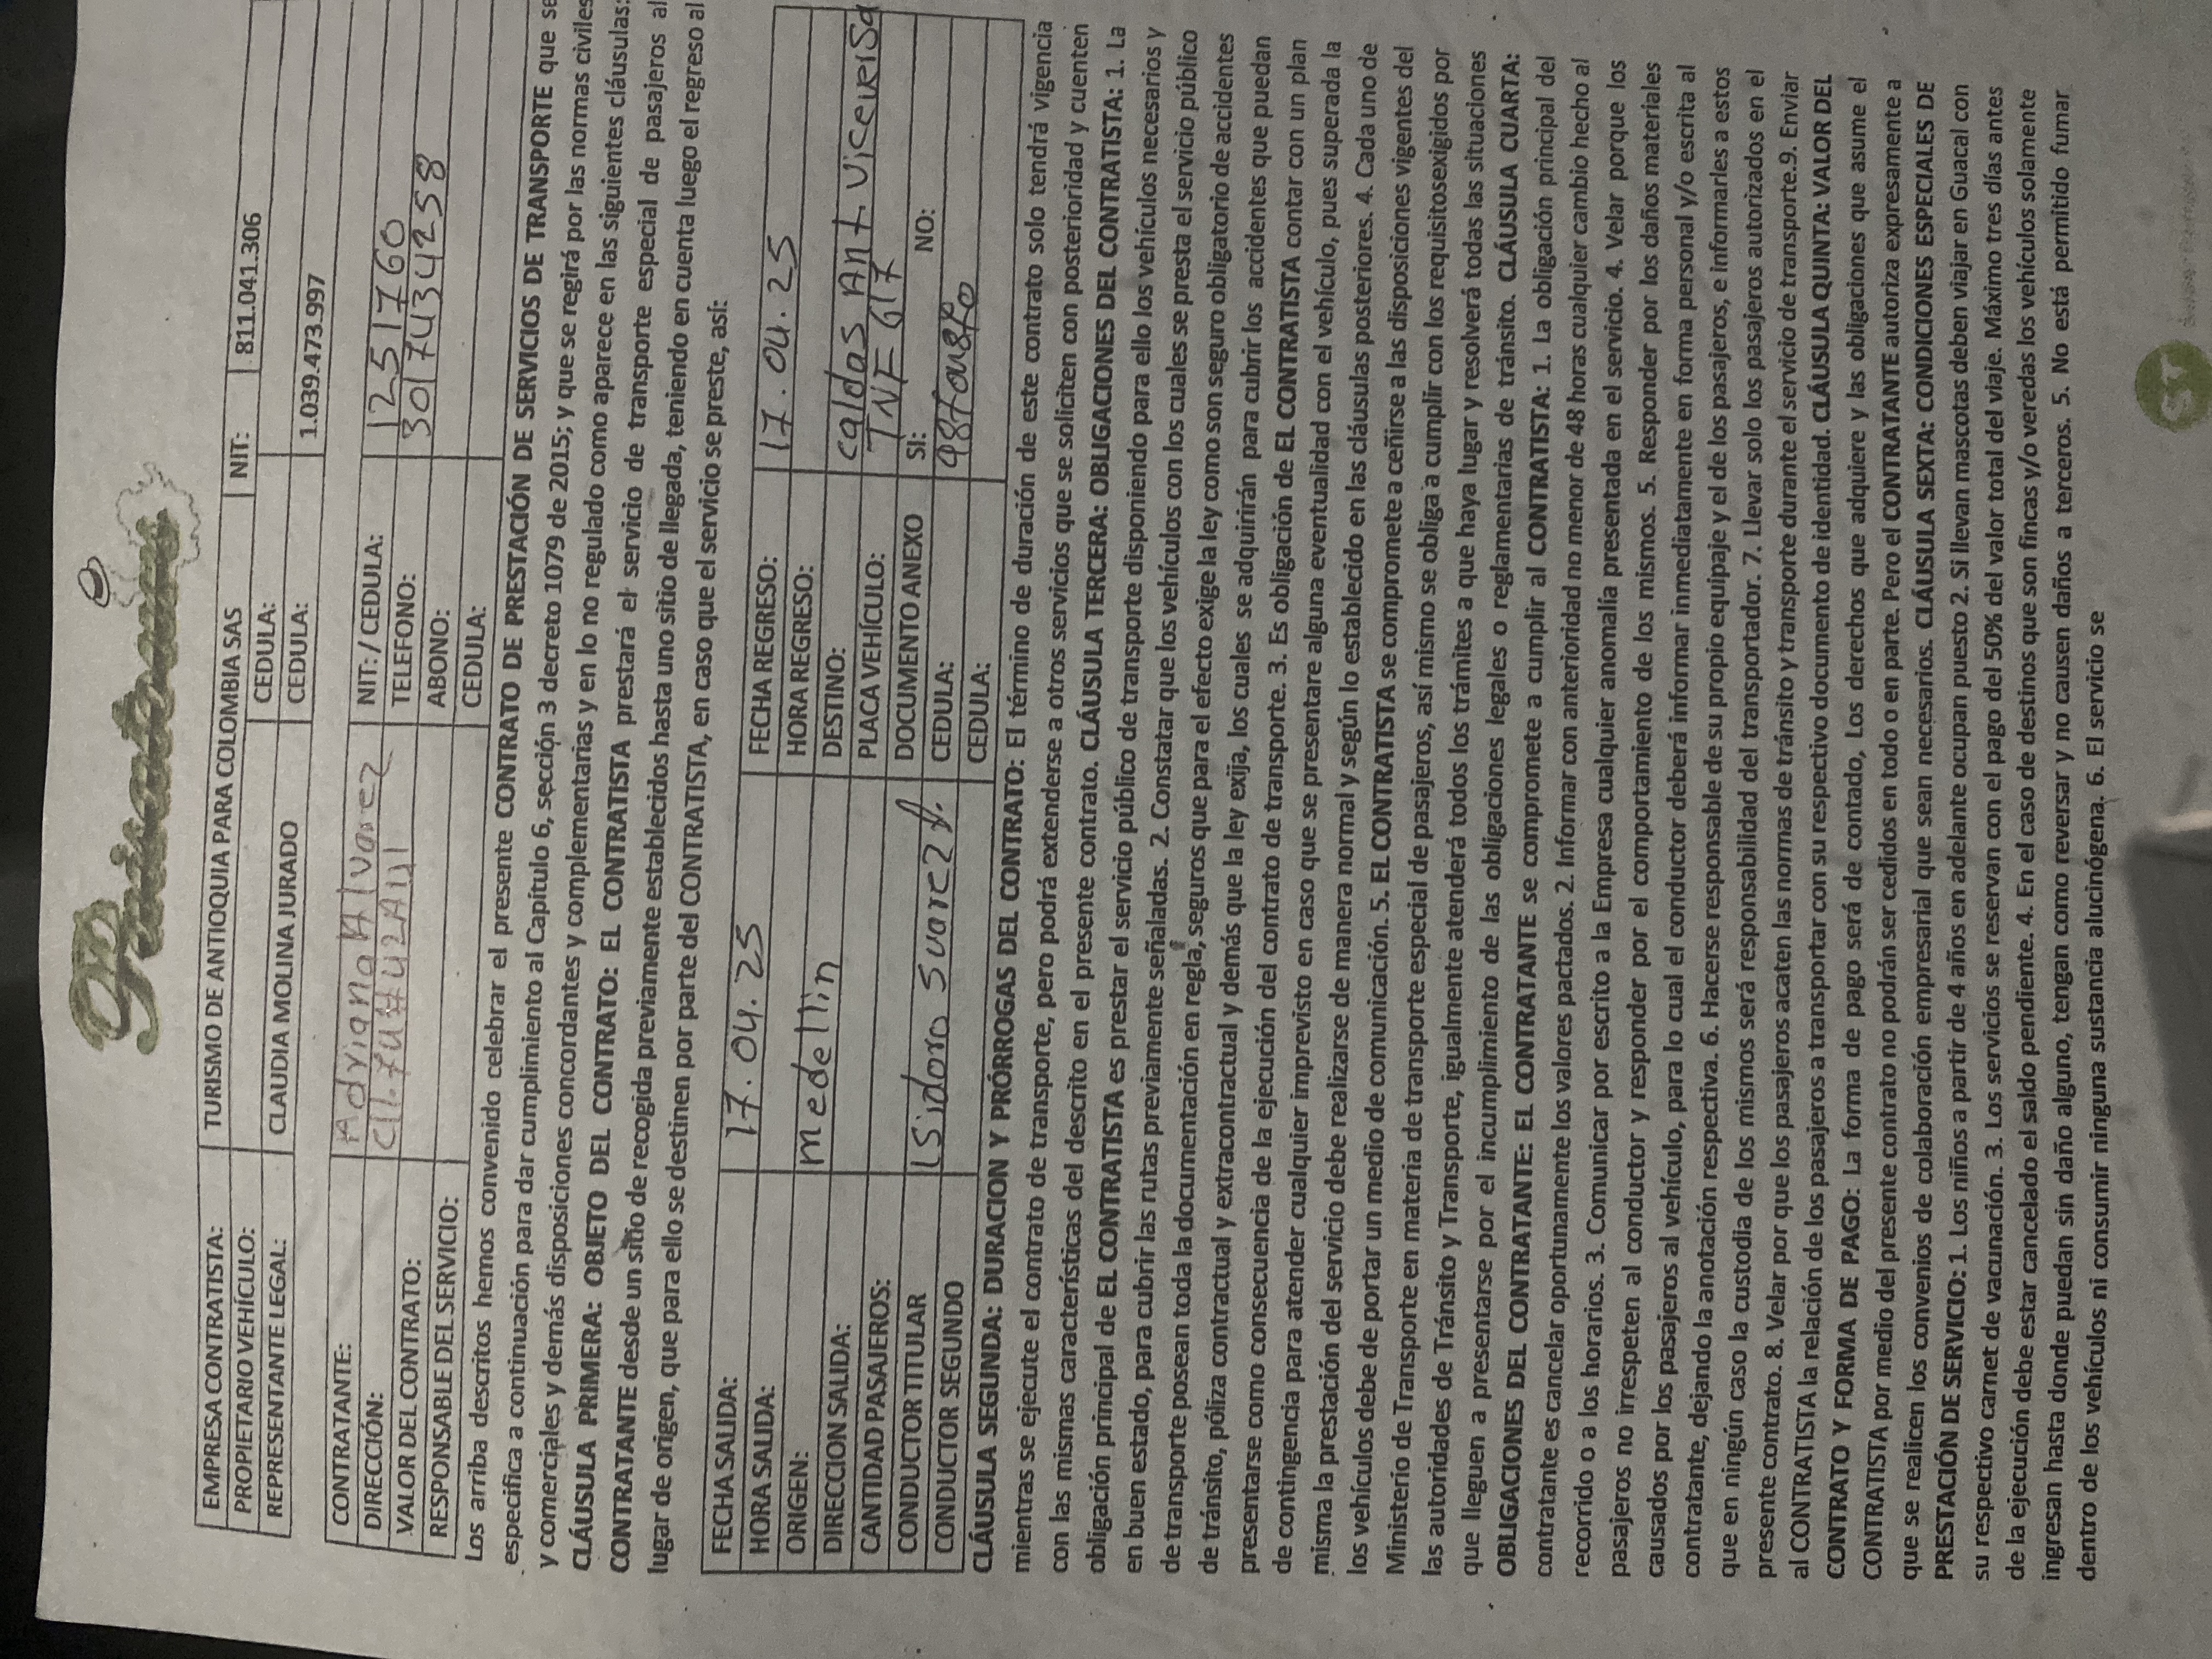 Praicatours
EMPRESA CONTRATISTA: TURISMO DE ANTIOQUIA PARA COLOMBIA SAS NIT: 811.041.306
PROPIETARIO VEHÍCULO: CEDULA:
REPRESENTANTE LEGAL: CLAUDIA MOLINA JURADO CEDULA: 1.039.473.997
CONTRATANTE: Adriana Alvarez NIT: / CEDULA: 1251760
DIRECCIÓN: Cll.74#42A1U1 TELEFONO: 3017434258
VALOR DEL CONTRATO: ABONO:
RESPONSABLE DEL SERVICIO: CEDULA:
Los arriba descritos hemos convenido celebrar el presente CONTRATO DE PRESTACIÓN DE SERVICIOS DE TRANSPORTE que se
especifica a continuación para dar cumplimiento al Capítulo 6, sección 3 decreto 1079 de 2015; y que se regirá por las normas civiles
y comerciales y demás disposiciones concordantes y complementarias y en lo no regulado como aparece en las siguientes cláusulas:
CLÁUSULA PRIMERA: OBJETO DEL CONTRATO: EL CONTRATISTA prestará el servicio de transporte especial de pasajeros al
CONTRATANTE desde un sitio de recogida previamente establecidos hasta uno sitio de llegada, teniendo en cuenta luego el regreso al
lugar de origen, que para ello se destinen por parte del CONTRATISTA, en caso que el servicio se preste, así:
FECHA SALIDA: 17.04.25 FECHA REGRESO: 17.04.25
HORA SALIDA: HORA REGRESO:
ORIGEN: medellin DESTINO: caldas Ant. viceversa
DIRECCION SALIDA: PLACA VEHÍCULO: TNF 617
CANTIDAD PASAJEROS: DOCUMENTO ANEXO SI: NO:
CONDUCTOR TITULAR Isidoro Suarez CEDULA:
CONDUCTOR SEGUNDO CEDULA:
CLÁUSULA SEGUNDA: DURACION Y PRÓRROGAS DEL CONTRATO: El término de duración de este contrato solo tendrá vigencia
mientras se ejecute el contrato de transporte, pero podrá extenderse a otros servicios que se soliciten con posterioridad y cuenten
con las mismas características del descrito en el presente contrato. CLÁUSULA TERCERA: OBLIGACIONES DEL CONTRATISTA: 1. La
obligación principal de EL CONTRATISTA es prestar el servicio público de transporte disponiendo para ello los vehículos necesarios y
en buen estado, para cubrir las rutas previamente señaladas. 2. Constatar que los vehículos con los cuales se presta el servicio público
de transporte posean toda la documentación en regla, seguros que para el efecto exige la ley como son seguro obligatorio de accidentes
de tránsito, póliza contractual y extracontractual y demás que la ley exija, los cuales se adquirirán para cubrir los accidentes que puedan
presentarse como consecuencia de la ejecución del contrato de transporte. 3. Es obligación de EL CONTRATISTA contar con un plan
de contingencia para atender cualquier imprevisto en caso que se presentare alguna eventualidad con el vehículo, pues superada la
misma la prestación del servicio debe realizarse de manera normal y según lo establecido en las cláusulas posteriores. 4. Cada uno de
los vehículos debe de portar un medio de comunicación. 5. EL CONTRATISTA se compromete a ceñirse a las disposiciones vigentes del
Ministerio de Transporte en materia de transporte especial de pasajeros, así mismo se obliga a cumplir con los requisitosexigidos por
las autoridades de Tránsito y Transporte, igualmente atenderá todos los trámites a que haya lugar y resolverá todas las situaciones
que lleguen a presentarse por el incumplimiento de las obligaciones legales o reglamentarias de tránsito. CLÁUSULA CUARTA:
OBLIGACIONES DEL CONTRATANTE: EL CONTRATANTE se compromete a cumplir al CONTRATISTA: 1. La obligación principal del
contratante es cancelar oportunamente los valores pactados. 2. Informar con anterioridad no menor de 48 horas cualquier cambio hecho al
recorrido o a los horarios. 3. Comunicar por escrito a la Empresa cualquier anomalía presentada en el servicio. 4. Velar porque los
pasajeros no irrespeten al conductor y responder por el comportamiento de los mismos. 5. Responder por los daños materiales
causados por los pasajeros al vehículo, para lo cual el conductor deberá informar inmediatamente en forma personal y/o escrita al
contratante, dejando la anotación respectiva. 6. Hacerse responsable de su propio equipaje y el de los pasajeros, e informarles a estos
que en ningún caso la custodia de los mismos será responsabilidad del transportador. 7. Llevar solo los pasajeros autorizados en el
presente contrato. 8. Velar por que los pasajeros acaten las normas de tránsito y transporte durante el servicio de transporte.9. Enviar
al CONTRATISTA la relación de los pasajeros a transportar con su respectivo documento de identidad. CLÁUSULA QUINTA: VALOR DEL
CONTRATO Y FORMA DE PAGO: La forma de pago será de contado, Los derechos que adquiere y las obligaciones que asume el
CONTRATISTA por medio del presente contrato no podrán ser cedidos en todo o en parte. Pero el CONTRATANTE autoriza expresamente a
que se realicen los convenios de colaboración empresarial que sean necesarios. CLÁUSULA SEXTA: CONDICIONES ESPECIALES DE
PRESTACIÓN DE SERVICIO: 1. Los niños a partir de 4 años en adelante ocupan puesto 2. Si llevan mascotas deben viajar en Guacal con
su respectivo carnet de vacunación. 3. Los servicios se reservan con el pago del 50% del valor total del viaje. Máximo tres días antes
de la ejecución debe estar cancelado el saldo pendiente. 4. En el caso de destinos que son fincas y/o veredas los vehículos solamente
ingresan hasta donde puedan sin daño alguno, tengan como reversar y no causen daños a terceros. 5. No está permitido fumar
dentro de los vehículos ni consumir ninguna sustancia alucinógena. 6. El servicio se